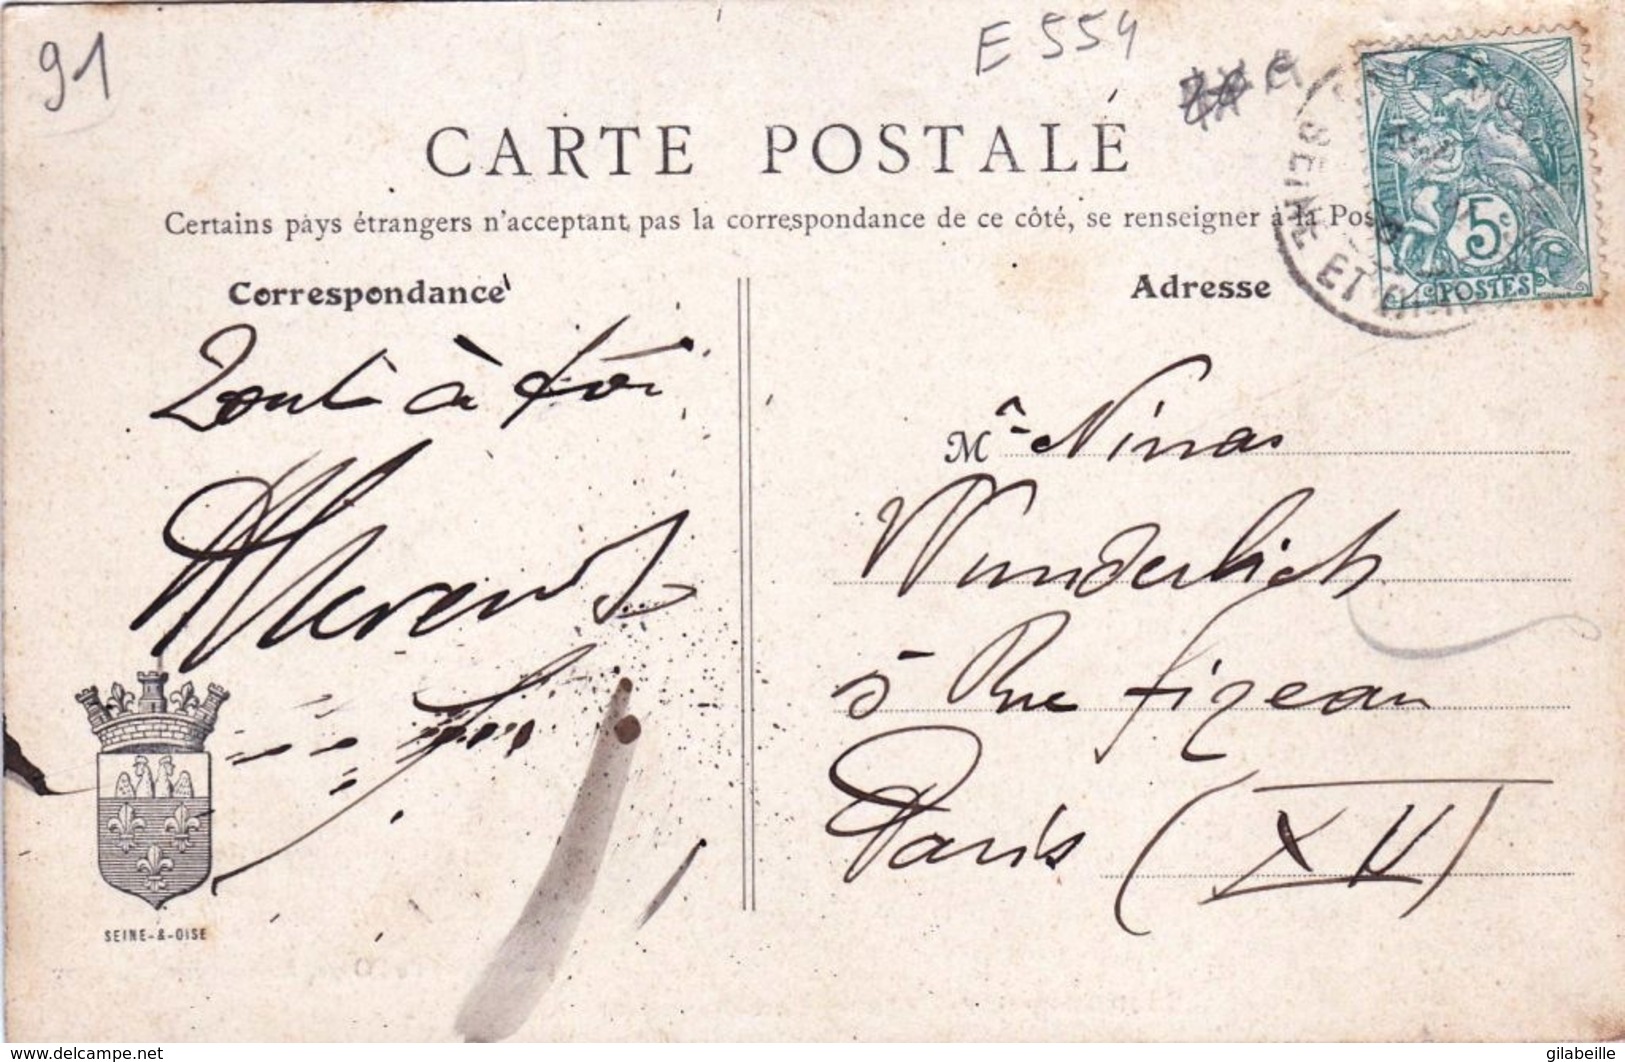 91
E 554
CARTE POSTALE
Certains pays étrangers n'acceptant pas la correspondance de ce côté, se renseigner à la Pos
SEINE ET OISE
5c
POSTES
Correspondance
Adresse
Tout à toi
Mr Ninas
Wunderlich
5 Rue Figeau
Paris (XV)
SEINE-&-OISE
www.delcampe.net
gilabeille